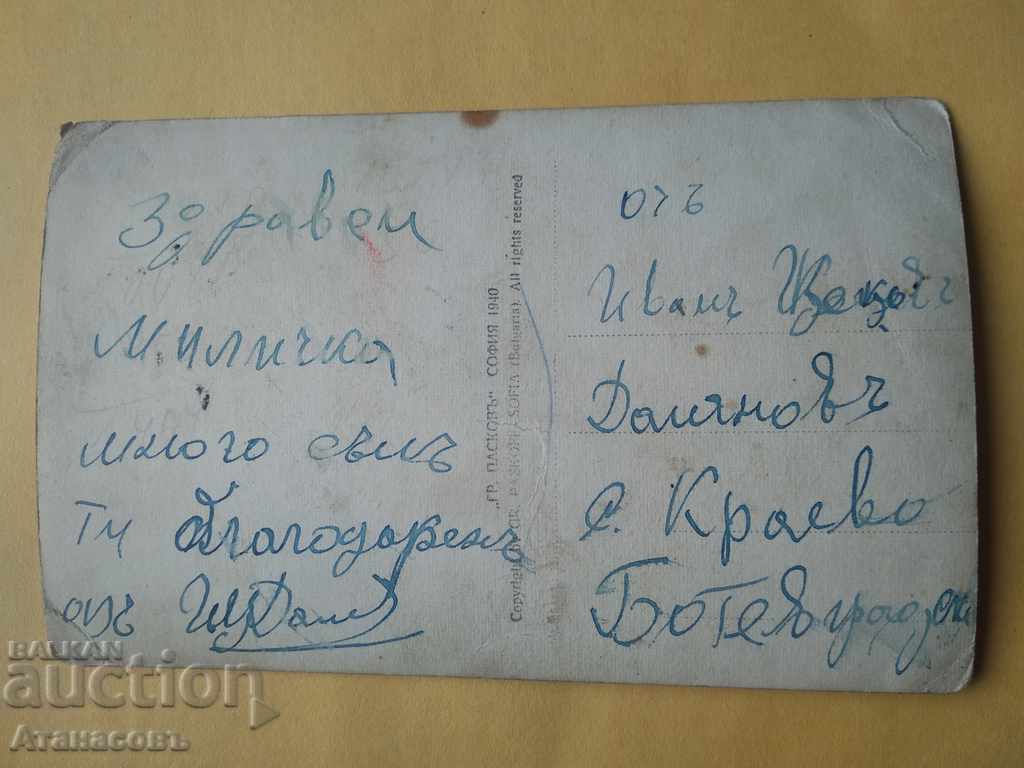 Здравей
Миличка
много съмъ
Ти благодаренъ
отъ
"ГР. ПАСКОВЪ" СОФИЯ 1940
Copyright GR. PASKOFF SOFIA (Bulgaria). All rights reserved
отъ
Иванъ
Доляновъ
с. Краево
Ботевградско
BALKAN
auction
Атанасовъ